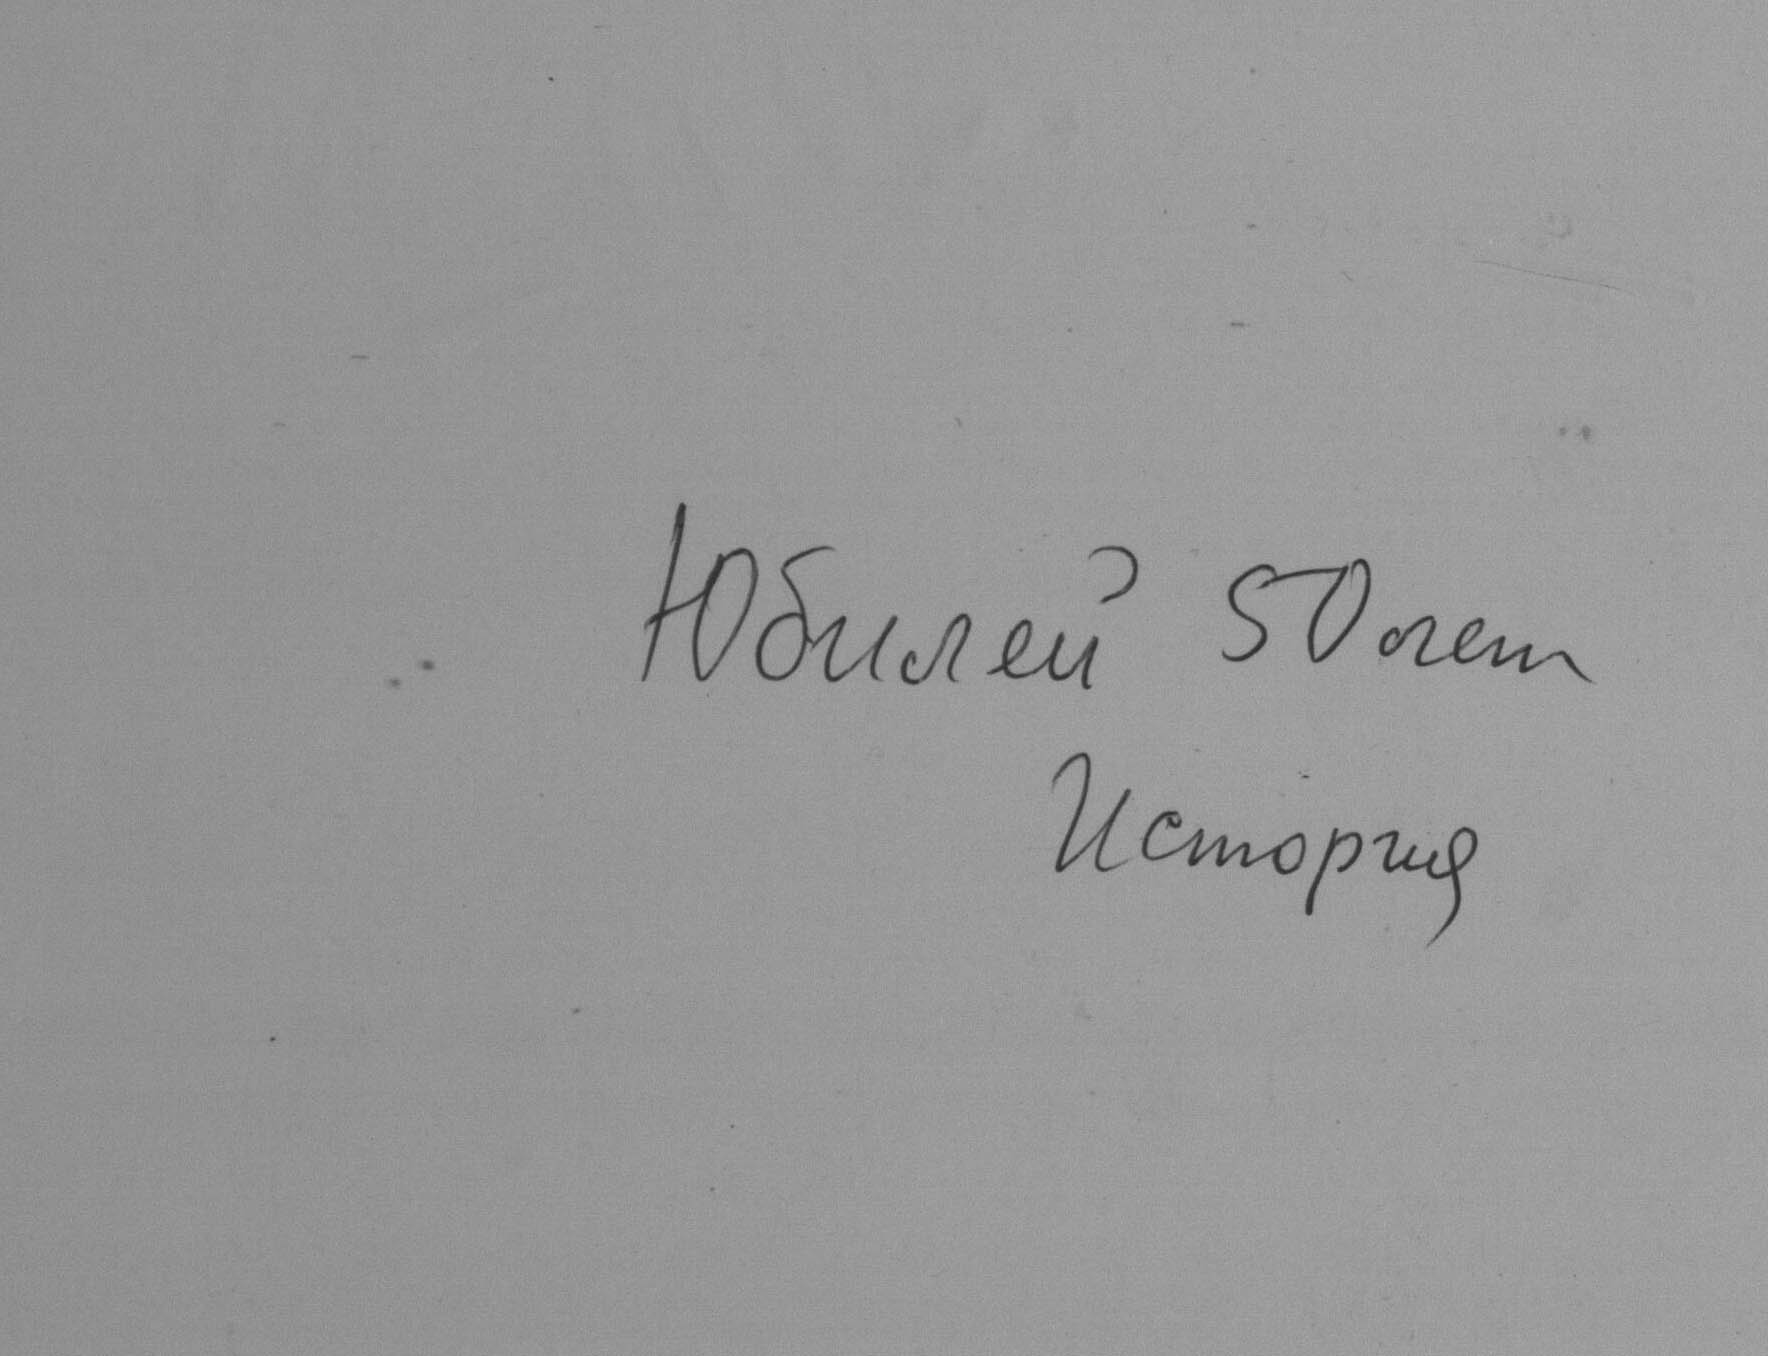 Юбилей 50 лет
История